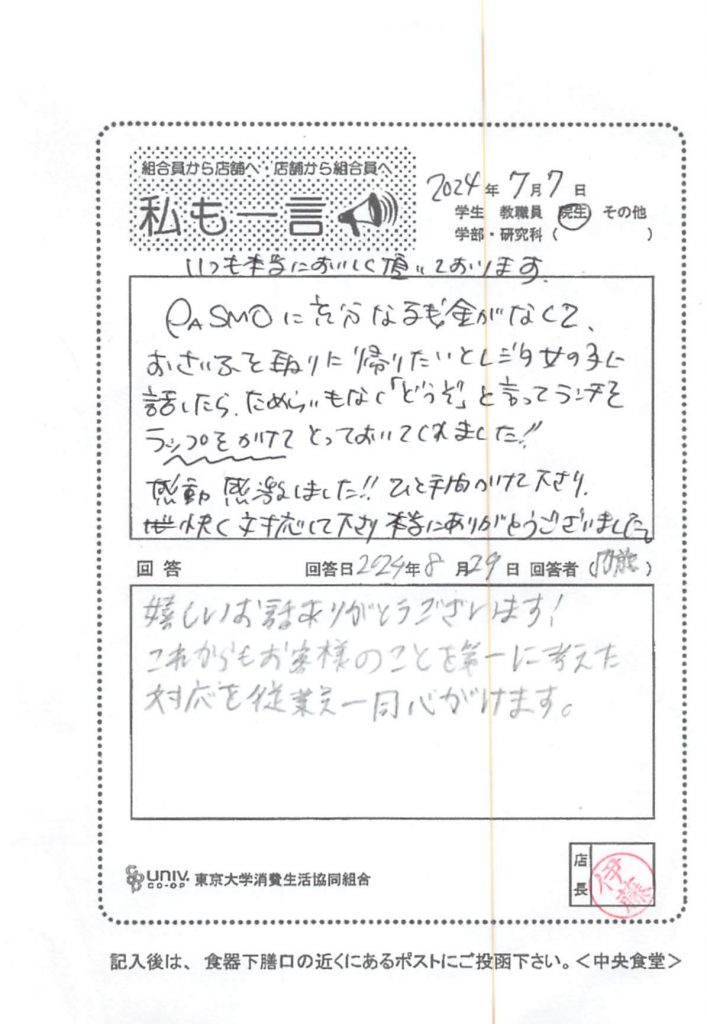 組合員から店舗へ・店舗から組合員へ
私も一言
2024年7月7日
学生 教職員 院生 その他
学部・研究科( )
いつも本当においしく頂いております。
PASMOに充分な残金がなくて、
おさいふを取りに帰りたいとレジの女の子に
話したら、ためらいもなく「どうぞ」と言ってランチを
ラップをかけてとっておいてくれました!!
感動 感激しました!! ひと手間かけて下さり、
快く対応して下さり本当にありがとうございました。
回答 回答日2024年8月29日 回答者( )
嬉しいお話ありがとうございます!
これからもお客様のことを第一に考えた
対応を従業員一同心がけます。
UNIV. CO-OP 東京大学消費生活協同組合
店長 伊藤
記入後は、食器下膳口の近くにあるポストにご投函下さい。<中央食堂>